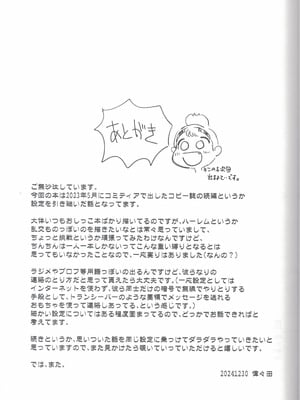 あとがき
ご無沙汰しています。
今回の本は2023年5月にコミティアで出したコピー誌の続編というか
設定を引き継いだ話となってます。
大体いつもおしっこ本ばかり描いてるのですが、ハーレムというか
乱交ものっぽいのを描きたいなとは常々思っていまして、
ちょっと挑戦というか頑張ってみたわけなんですけど、
ちんちんは一人一本しかないってこんな重い縛りとなるとは
思ってもいなかったことなので、一穴裏りはありました（なんの？）
ラジメやプロフ等用語っぽいの出るんですけど、彼らなりの
連絡のとり方だと思って貰えたら大丈夫です。（一応設定としては
インターネットを使わず、彼ら同士だけの暗号で無線でやりとりする
手段として、トランシーバーのような要領でメッセージを送れる
おもちゃを使って連絡しあってる、という感じです。）
細かい設定についてはある程度まとまってるので、どっかでお話できればと
考えてます。
続きというか、思いついた話を同じ設定に乗っけてダラダラやっていきたいと
思っていますので、また見かけたら覗いていっていただけると嬉しいです。
では、また。
20241230